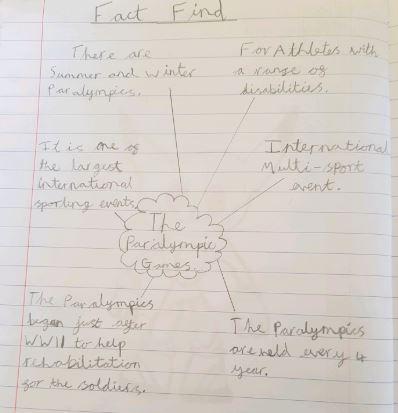 Fact Find
There are
Summer and Winter
Paralympics.
For Athletes with
a range of
disabilities.
It is one of
the largest
international
sporting events
International
Multi-sport
event.
The
Paralympic
Games
The Paralympics
began just after
WWII to help
rehabilitation
for the soldiers.
The Paralympics
are held every 4
year.